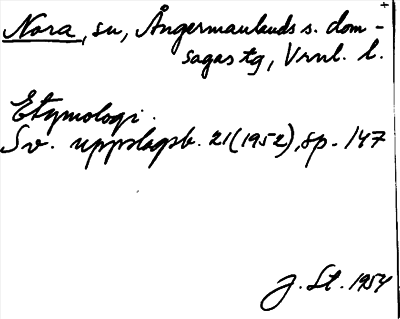 Nora, sn, Ångermanlands s. dom-
sagas tg, Vrnl. l.
Etymologi.
Sv. uppslagsb. 21(1952), sp. 147
J. St. 1954